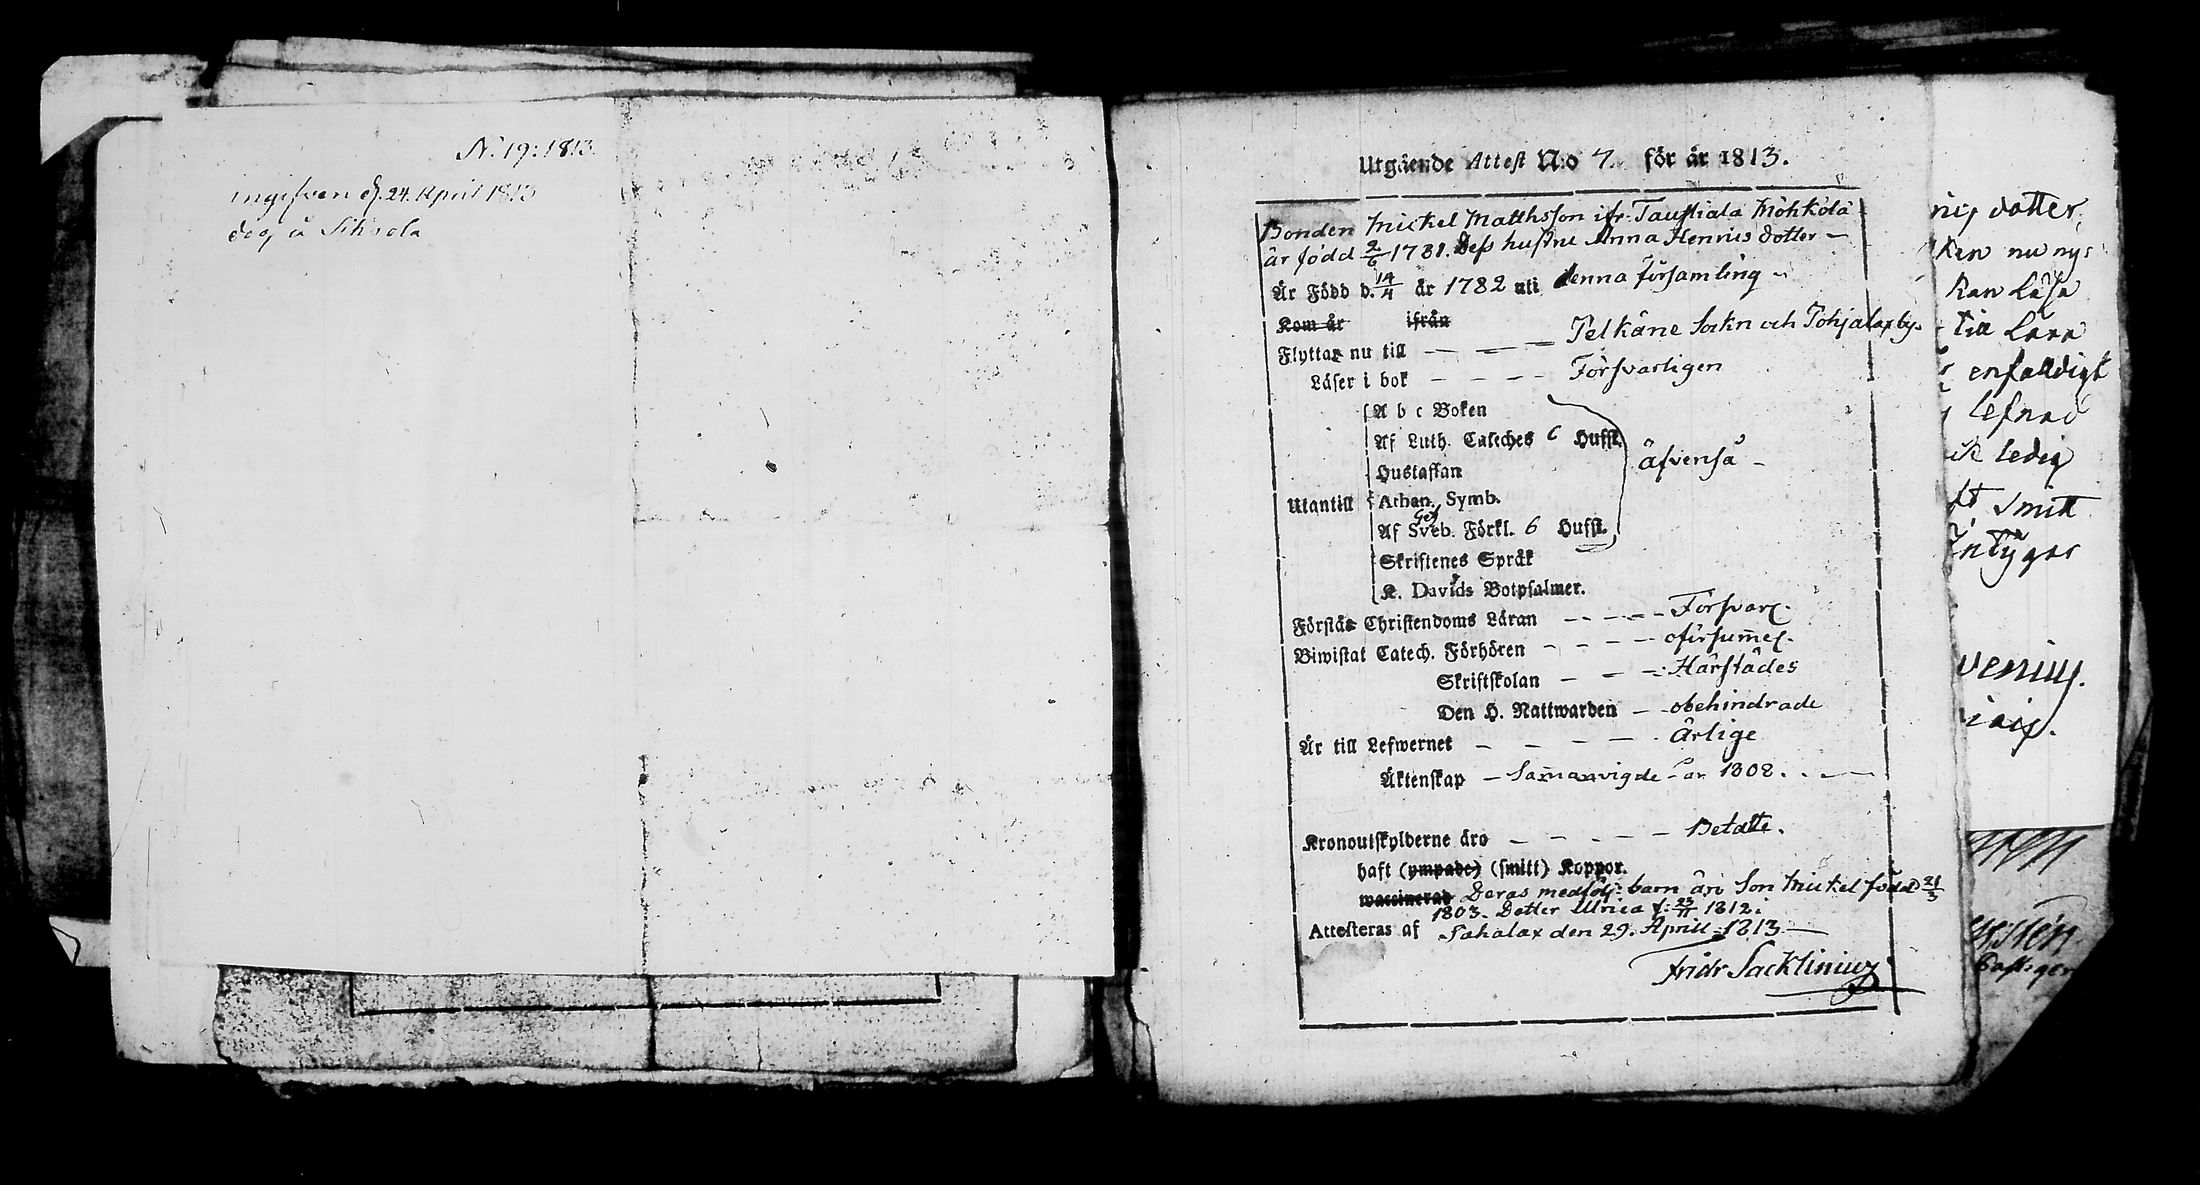 N. 19: 1813.
ingifven d. 24. April 1813
dag, å
Utgående Attest N:o 7. för år 1813.
Bonden Mickel Matthsson ifr. Taustiala Möhkölä
är född 2/6 1781. Dess hustru Anna Henrics dotter –
Är Född d. 14/4 år 1782 uti denna församling –
Kom år ifrån
Flyttar nu till — — — Pelkäne Sockn och Pohjalax by.
Läser i bok – – – – Försvarligen
A b c Boken
Af Luth. Cateches 6 Hufst.
Hustaflan
äfvenså –
Utantill Athan. Symb.
Af Sveb. Förkl. 6 Hufst.
Skriftenes Språk
K. Davids Botpsalmer.
Förstår Christendoms Läran – – – – Försvarl.
Biwistat Catech. Förhören – – – – oförsumel.
Skriftskolan – – – Härstädes
Den H. Nattwarden – – obehindrade
Är till Lefwernet – – – – Ärlige
Äktenskap – Samanvigde år 1802. – –
Kronoutskylderne äro – – – – – Betalte.
haft (ympade) (smitt) Koppor.
waccinerad Deras medfölj: barn äro Son Mickel född 21/3
1803. Dotter Ulrica f: 23/11 1812.
Attesteras af Sahalax den 29. Aprill 1813 —
Fridr Sacklinius
dotter
nu nys
kan Läsa
till
enfalldigt
lefnad
ledig
Smitt
Intygar